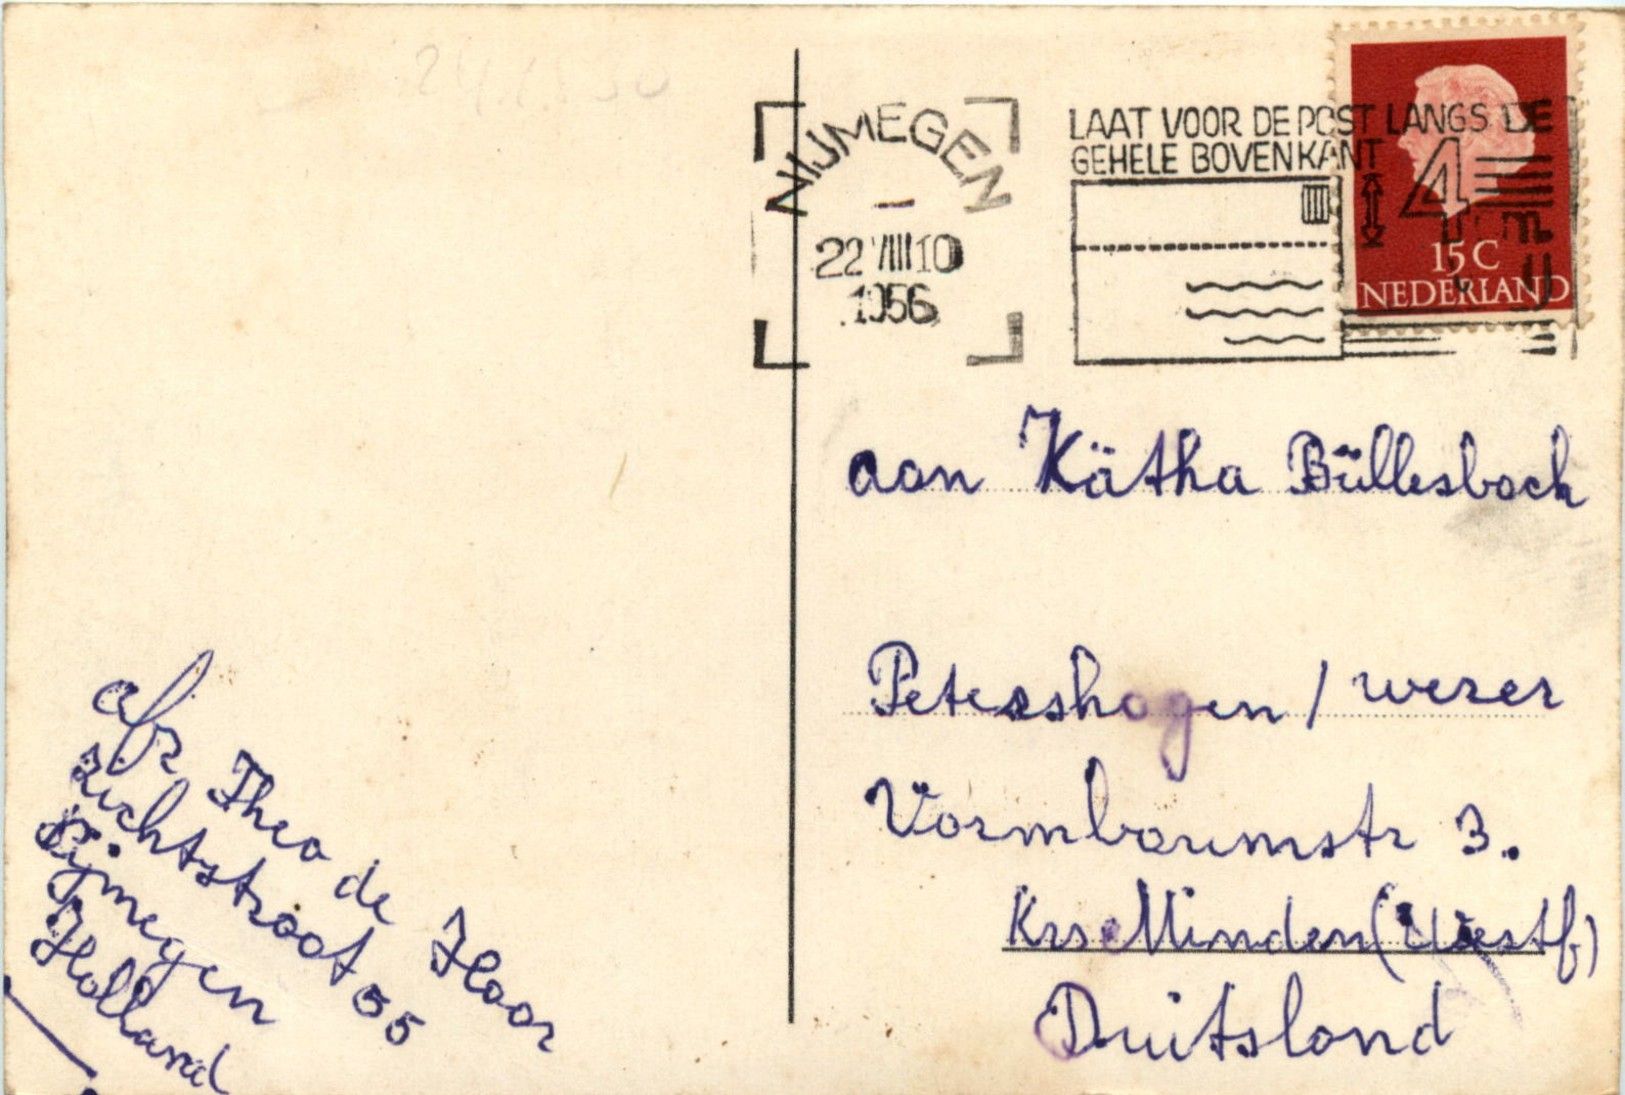 NIJMEGEN
22 VIII 10
1956
LAAT VOOR DE POST LANGS DE
GEHELE BOVENKANT 4 cm
15 C
NEDERLAND
aan Kätha Büllesbach
Petershagen / weser
Vormbaumstr 3.
Krs Minden (Westf)
Duitsland
afz Theo de Haar
zichtstraat 55
Nijmegen
Holland